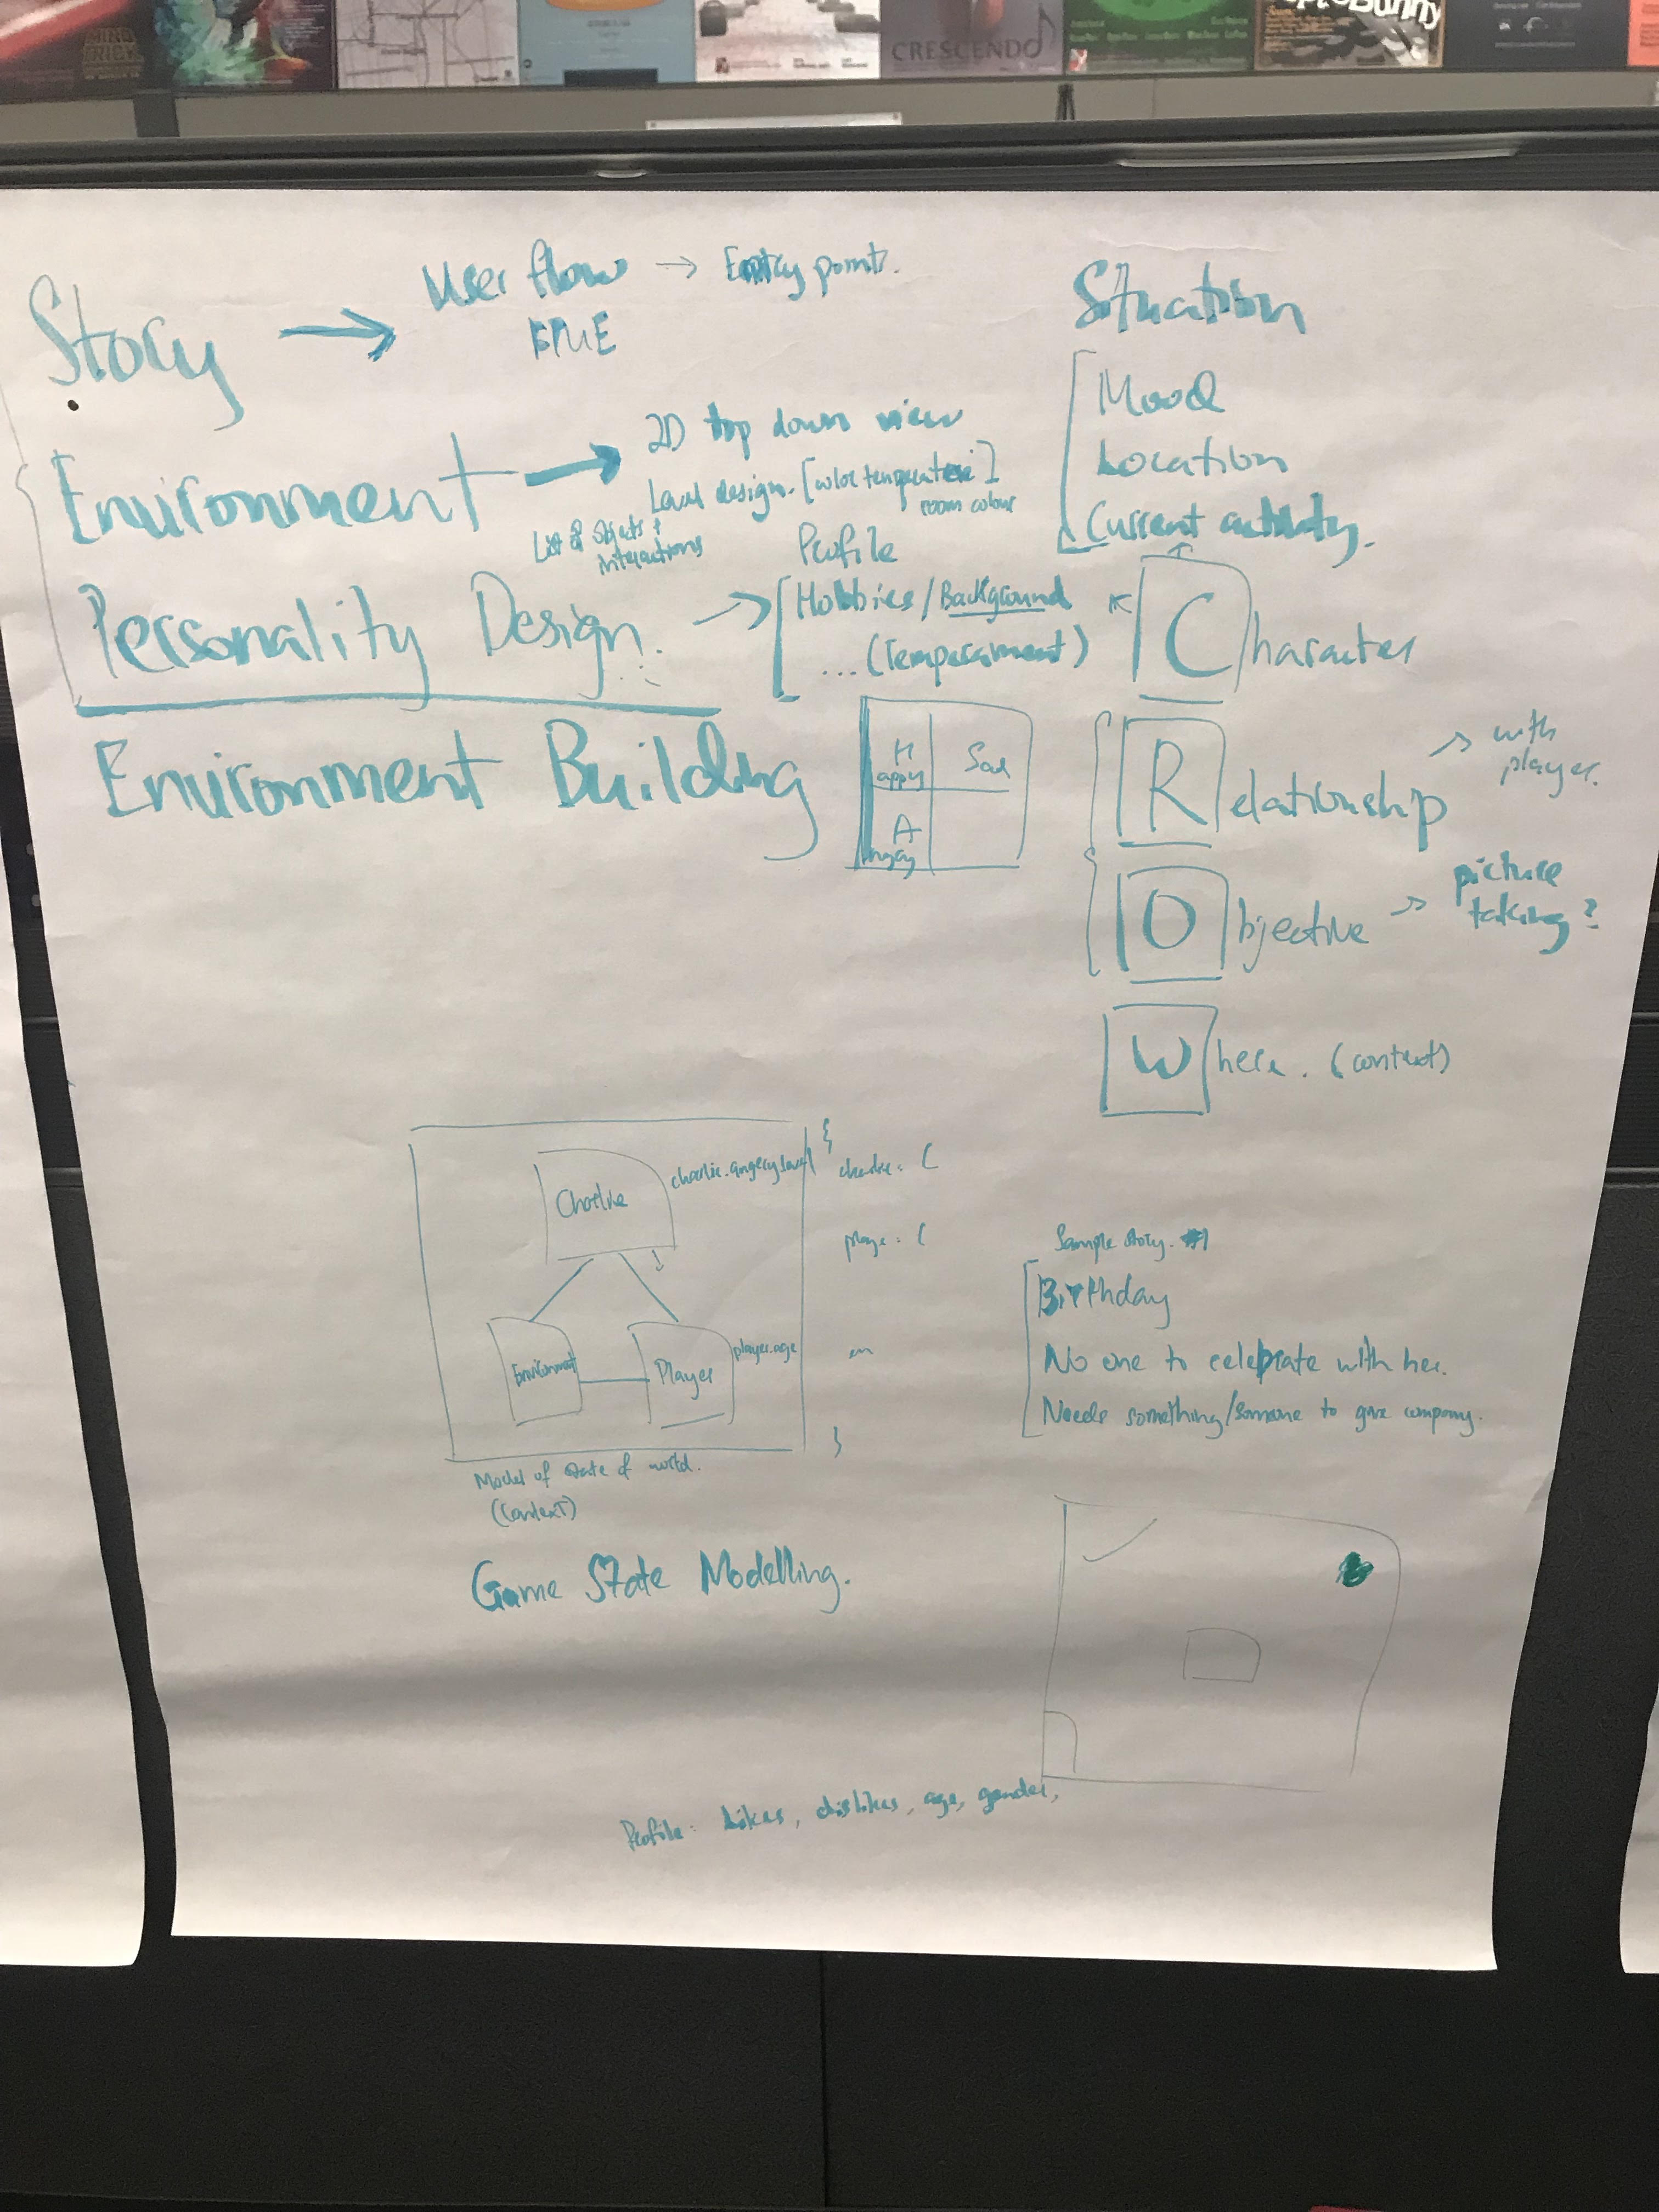 CRESCENDO
Story → User flow → Entry point.
Environment → 2D top down view
Level design. [color temperature]
room colour
List of objects &
interactions
Personality Design. → Profile
Hobbies / Background
... (Temperament)
Environment Building
Happy
Sad
Angry
Situation
Mood
Location
Current activity.
Character
Relationship → with
player.
Objective → picture
taking?
Where. (context)
Charlie
charlie.angery.level
Environment
Player
player.age
{
charlie: (
playe: (
en
}
Model of state of world.
(Context)
Game State Modelling.
Sample story. #1
Birthday
No one to celebrate with her.
Needs something/someone to give company.
Profile: Likes, dislikes, age, gender,